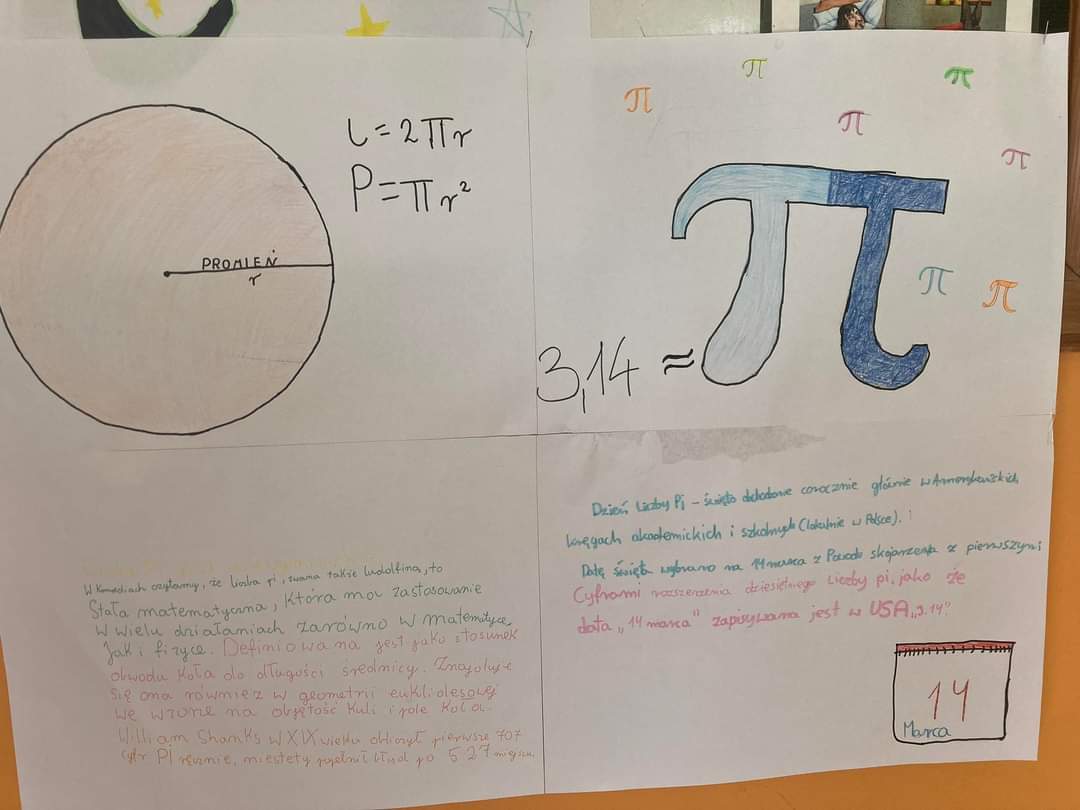 l = 2πr
P = πr²
PROMIEŃ
r
π
π
π
π
π
π
π
3,14 ≈ π
czytamy, że liczba pi, zwana także ludolfiną, to
Stała matematyczna, która ma zastosowanie
w wielu działaniach zarówno w matematyce,
jak i fizyce. Definiowana jest jako stosunek
obwodu koła do długości średnicy. Znajduje
się ona również w geometrii euklidesowej
we wzorze na objętość kuli i pole koła.
William Shanks w XIX wieku obliczył pierwsze 707
cyfr PI ręcznie, niestety popełnił błąd po 527 miejscu.
Dzień Liczby Pi – święto obchodzone corocznie głównie w Amerykańskich
kręgach akademickich i szkolnych (lokalnie w Polsce).
Datę święta wybrano na 14 marca z Powodu skojarzenia z pierwszymi
Cyframi rozszerzenia dziesiętnego Liczby pi, jako że
data „14 marca" zapisywana jest w USA „3.14".
14
Marca